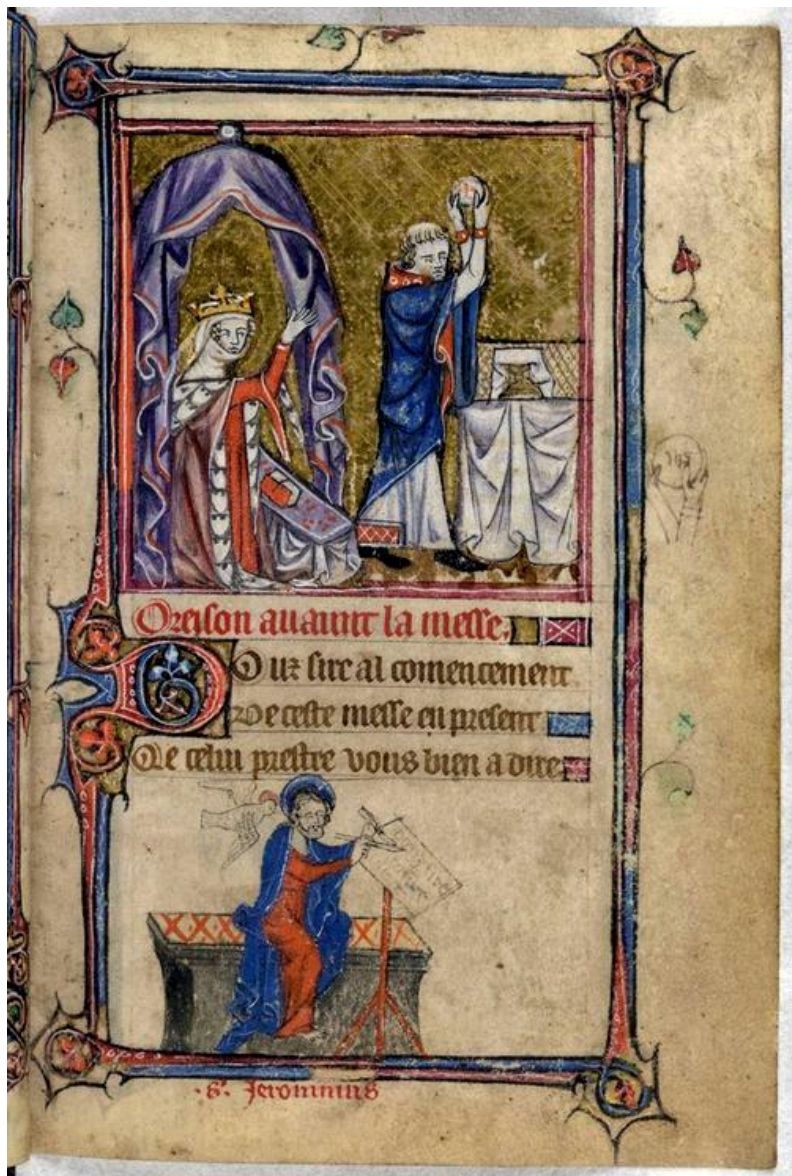 Oreison auaunt la messe.
Douz sire al comencement
De ceste messe en present
Qe celui prestre vous bien a dire
.S'. Jeronimus